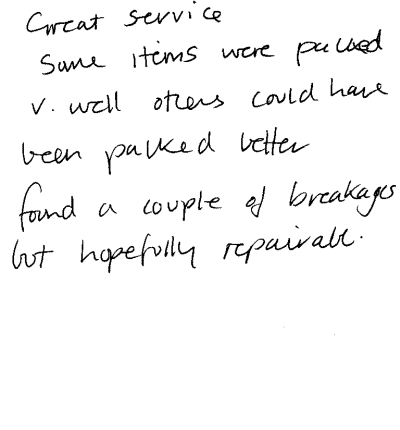 Great service
Some items were packed
v. well others could have
been packed better
found a couple of breakages
but hopefully repairable.